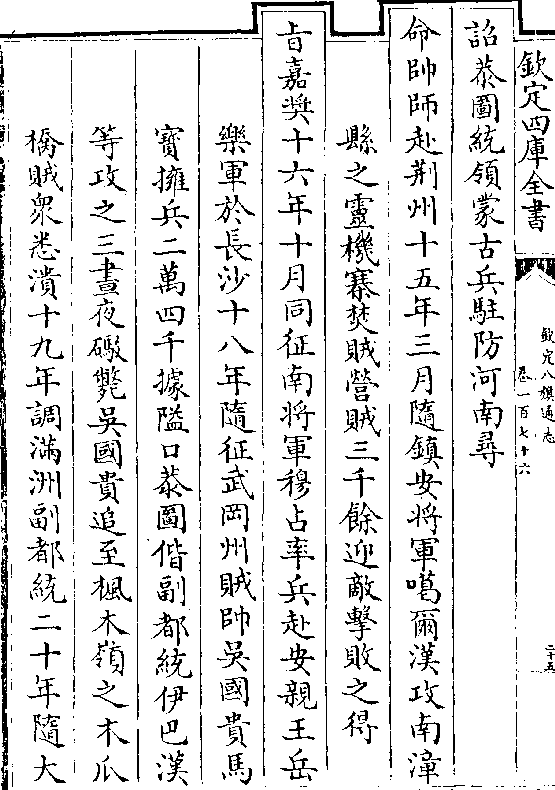 欽定四庫全書
欽定八旗通志
卷一百七十六
二十五
詔恭圖統領蒙古兵駐防河南尋
命帥師赴荆州十五年三月隨鎮安將軍噶爾漢攻南漳
縣之靈機寨焚賊營賊三千餘迎敵擊敗之得
旨嘉奬十六年十月同征南將軍穆占率兵赴安親王岳
樂軍於長沙十八年隨征武岡州賊帥吳國貴馬
寳擁兵二萬四千據隘口恭圖偕副都統伊巴漢
等攻之三晝夜礟斃吳國貴追至楓木嶺之木瓜
橋賊衆悉潰十九年調滿洲副都統二十年隨大